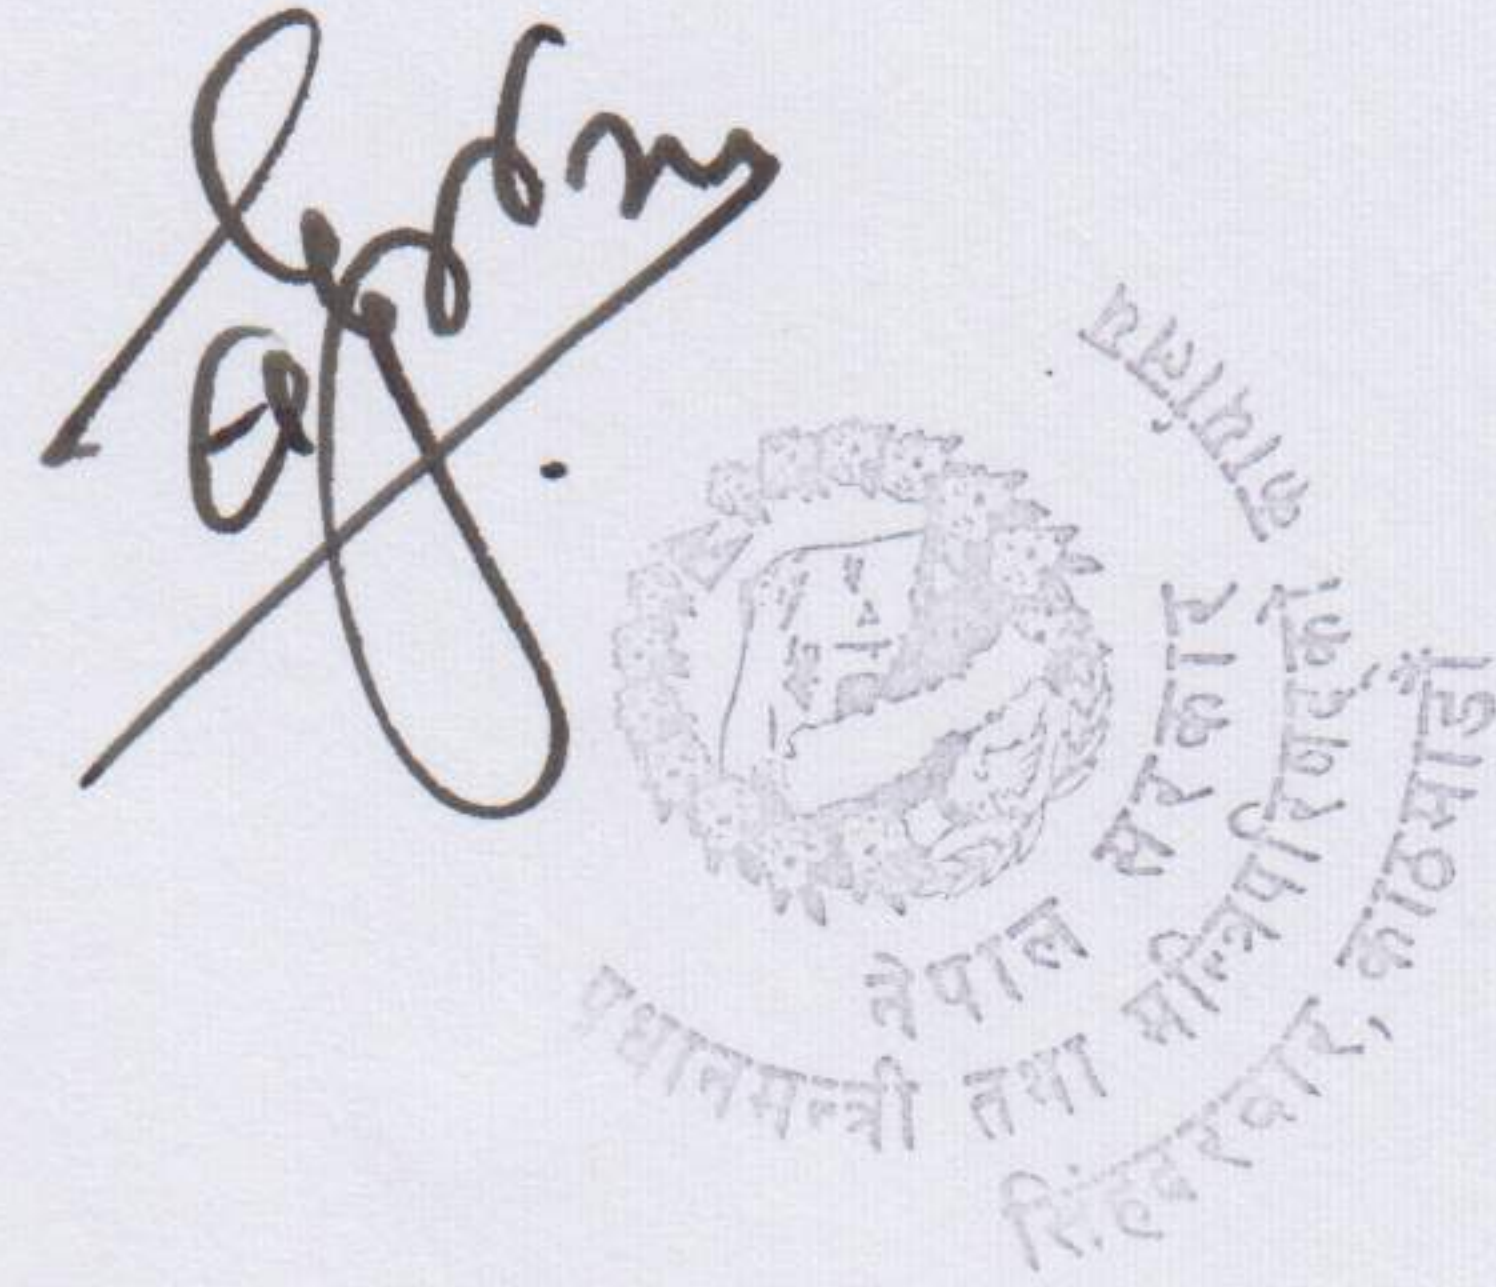 नेपाल सरकार
प्रधानमन्त्री तथा मन्त्रिपरिषद्को कार्यालय
सिंहदरवार, काठमाडौं